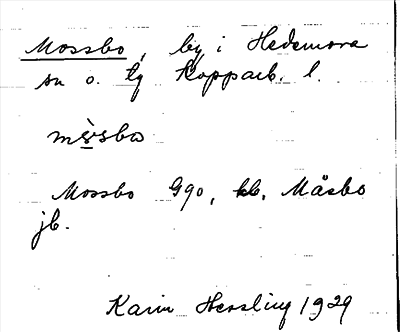 Mossbo, by i Hedemora
sn o. tg Kopparb. l.
mòsbo
Mossbo G90, kb. Måsbo
jb.
Karin Hessling 1929